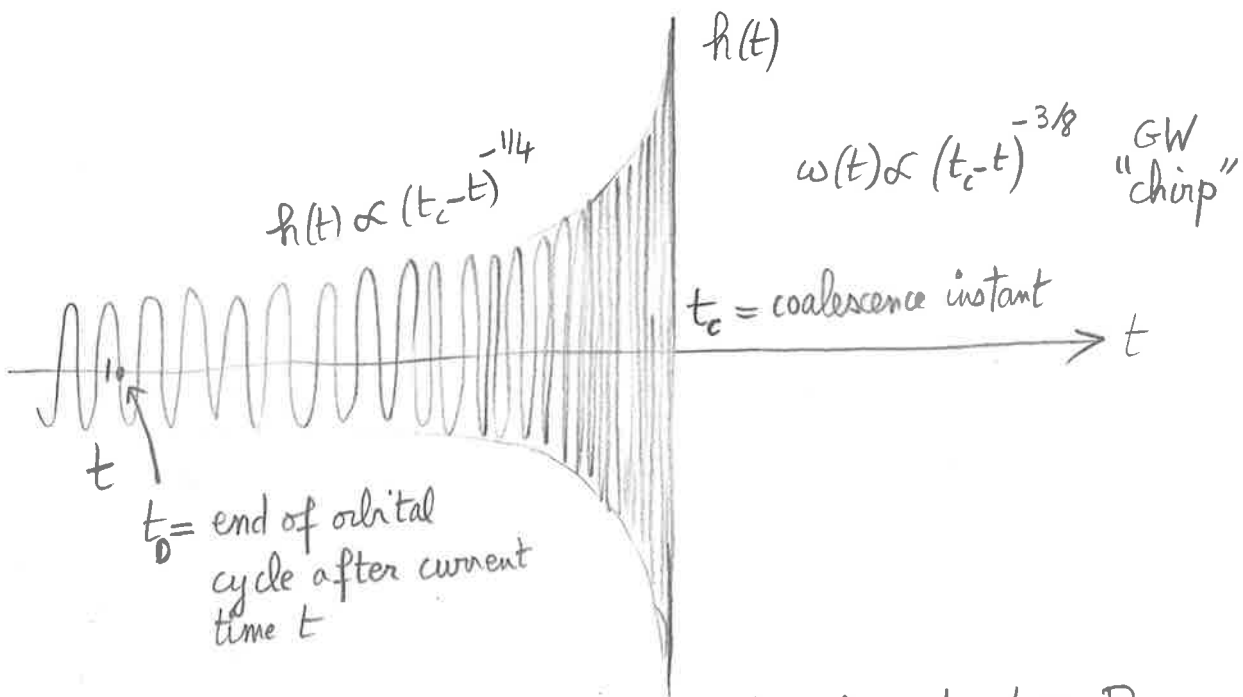 h(t)
h(t) ∝ (t_c-t)^{-1/4}
ω(t) ∝ (t_c-t)^{-3/8} GW
"chirp"
t_c = coalescence instant
t
t
t_D = end of orbital
cycle after current
time t